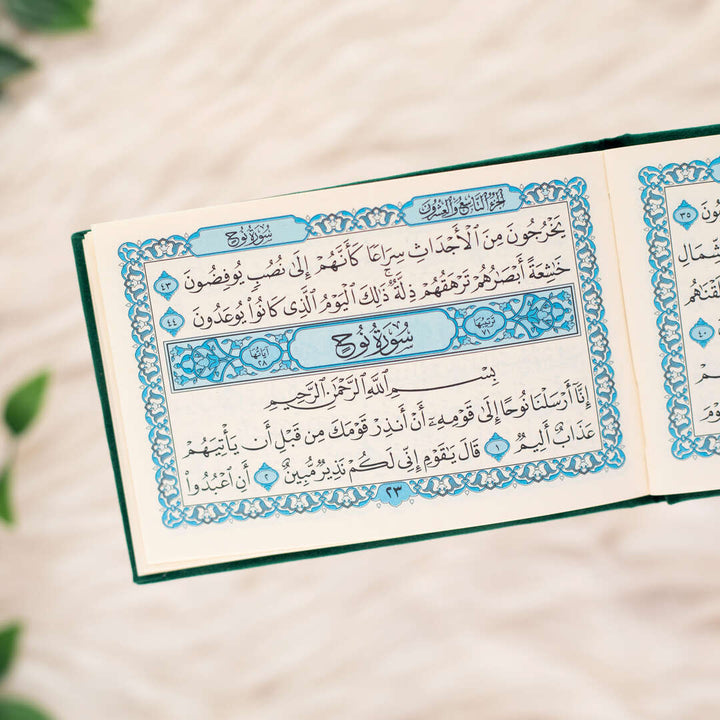 الجزء التاسع والعشرون
سورة نوح
يَخْرُجُونَ مِنَ ٱلْأَجْدَاثِ سِرَاعًا كَأَنَّهُمْ إِلَىٰ نُصُبٍ يُوفِضُونَ ٤٣
خَٰشِعَةً أَبْصَٰرُهُمْ تَرْهَقُهُمْ ذِلَّةٌ ۚ ذَٰلِكَ ٱلْيَوْمُ ٱلَّذِى كَانُوا۟ يُوعَدُونَ ٤٤
ترتيبها ٧١
سُورَةُ نُوحٍ
آياتها ٢٨
بِسْمِ ٱللَّهِ ٱلرَّحْمَٰنِ ٱلرَّحِيمِ
إِنَّآ أَرْسَلْنَا نُوحًا إِلَىٰ قَوْمِهِۦٓ أَنْ أَنذِرْ قَوْمَكَ مِن قَبْلِ أَن يَأْتِيَهُمْ
عَذَابٌ أَلِيمٌ ١ قَالَ يَٰقَوْمِ إِنِّى لَكُمْ نَذِيرٌ مُّبِينٌ ٢ أَنِ ٱعْبُدُوا۟
٢٣
٣٥
٤٠